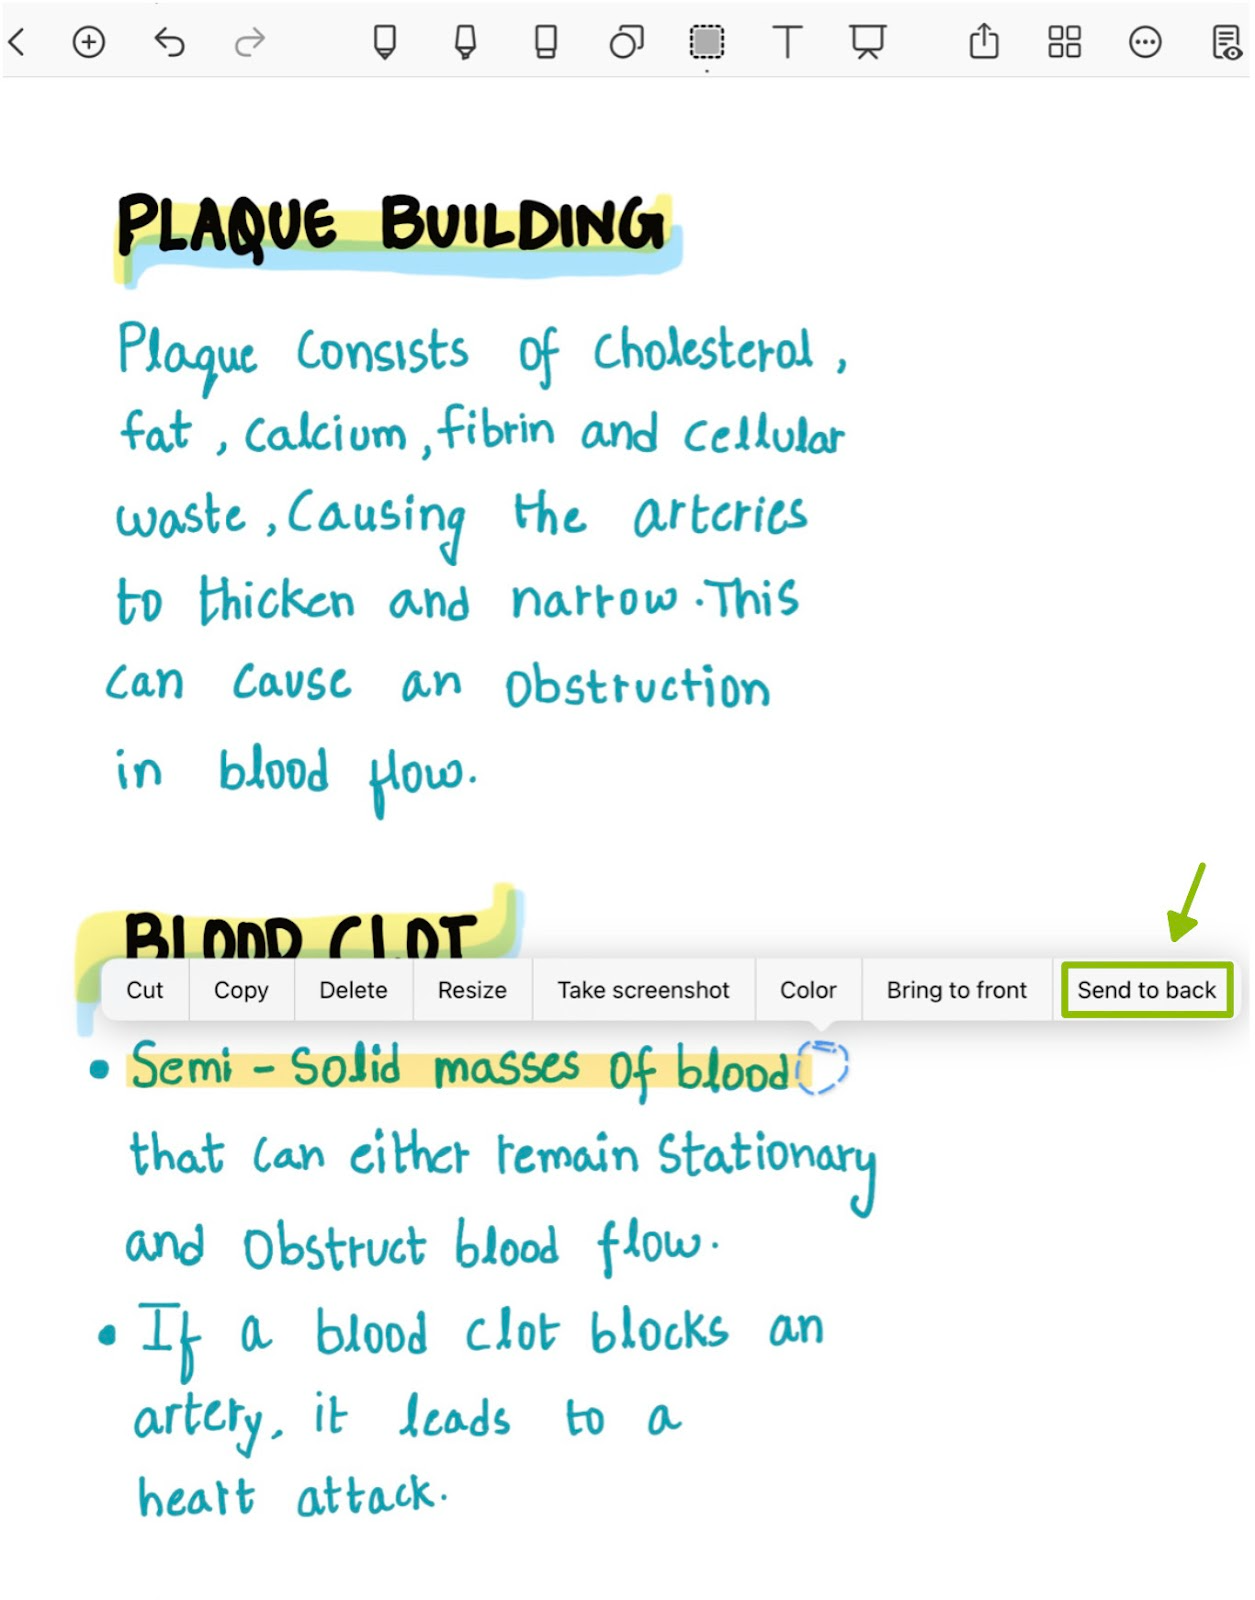 PLAQUE BUILDING
Plaque Consists of Cholesterol,
fat, Calcium, fibrin and cellular
waste, Causing the arteries
to thicken and narrow. This
can cause an obstruction
in blood flow.
BLOOD CLOT
Cut Copy Delete Resize Take screenshot Color Bring to front Send to back
• Semi-Solid masses of blood
that can either remain stationary
and obstruct blood flow.
• If a blood clot blocks an
artery, it leads to a
heart attack.